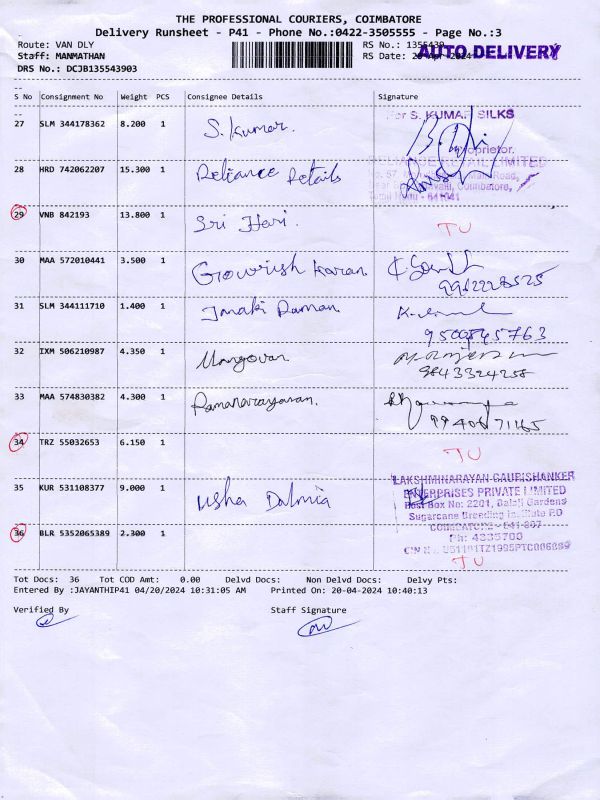 THE PROFESSIONAL COURIERS, COIMBATORE
Delivery Runsheet - P41 - Phone No.:0422-3505555 - Page No.:3
Route: VAN DLY RS No.: 1355439
Staff: MANMATHAN RS Date: 20 Apr 2024 AUTO DELIVERY
DRS No.: DCJB135543903
S No Consignment No Weight PCS Consignee Details Signature
27 SLM 344178362 8.200 1 S. Kumar. For S. KUMAR SILKS
Proprietor.
28 HRD 742062207 15.300 1 Reliance Retails RELIANCE RETAIL LIMITED
Road,
Coimbatore,
Tamil Nadu - 641041
29 VNB 842193 13.800 1 Sri Hari. TU
30 MAA 572010441 3.500 1 Gowrish Karan
9962228525
31 SLM 344111710 1.400 1 Janaki Raman
9500845763
32 IXM 506210987 4.350 1 Mangovan
9843324258
33 MAA 574830382 4.300 1 Ramanarayanan.
9940671165
34 TRZ 55032653 6.150 1 TU
35 KUR 531108377 9.000 1 Usha Dalmia LAKSHMINARAYAN GAURISHANKER
ENTERPRISES PRIVATE LIMITED
Post Box No: 2201, Balaji Gardens
Sugarcane Breeding Institute P.O
COIMBATORE - 641 007
36 BLR 5352065389 2.300 1 Ph: 4335700
TU
Tot Docs: 36 Tot COD Amt: 0.00 Delvd Docs: Non Delvd Docs: Delvy Pts:
Entered By :JAYANTHIP41 04/20/2024 10:31:05 AM Printed On: 20-04-2024 10:40:13
Verified By Staff Signature